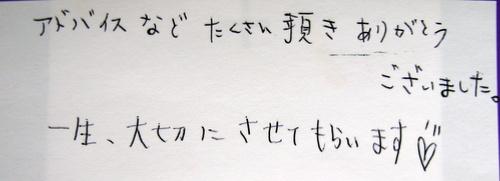 アドバイスなど たくさん頂き ありがとう
ございました。
一生、大切に させてもらいます♡